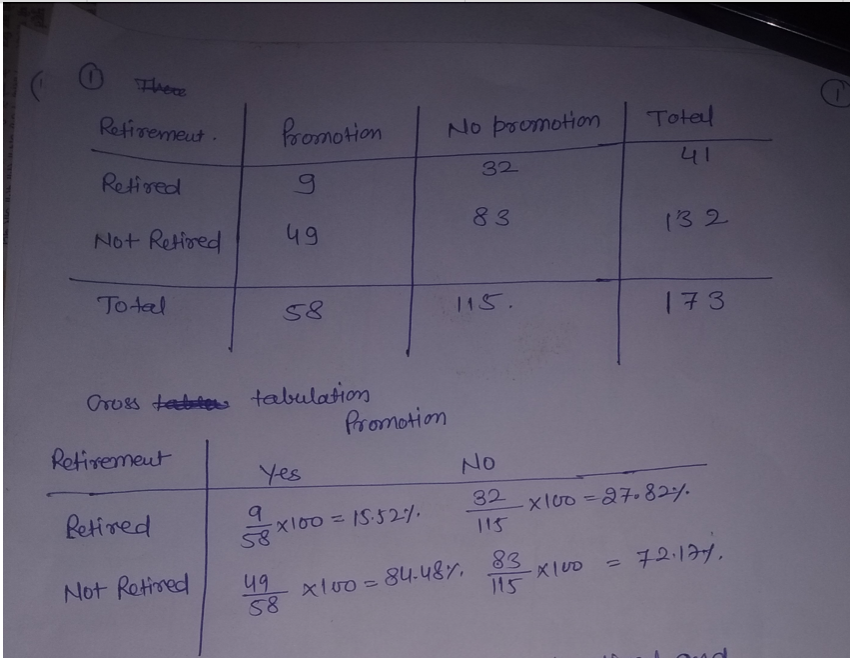 ① There ①
Retirement. Promotion No promotion Total
Retired 9 32 41
Not Retired 49 83 132
Total 58 115. 173
Cross tabulation
Promotion
Retirement Yes No
Retired 9/58 ×100 = 15.52%. 32/115 ×100 = 27.82%.
Not Retired 49/58 ×100 = 84.48%. 83/115 ×100 = 72.17%.
and